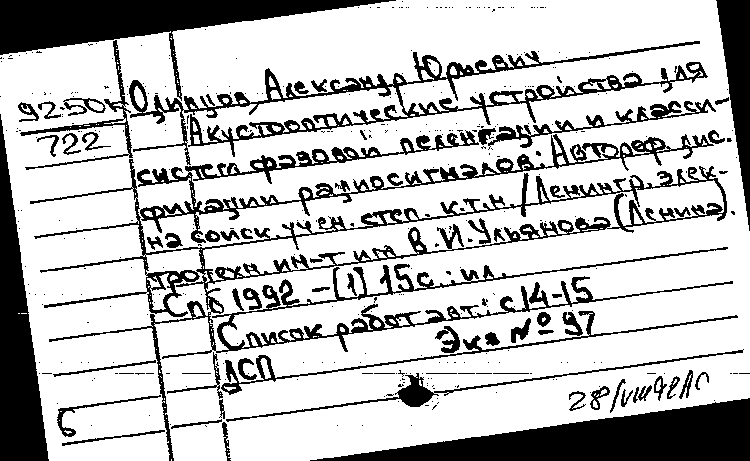 92-50к
722
Одинцов, Александр Юрьевич
Акустооптические устройства для
систем фазовой пеленгации и класси-
фикации радиосигналов: Автореф. дис.
на соиск. учен. степ. к.т.н. / Ленингр. элек-
тротехн. ин-т им В.И.Ульянова (Ленина).
-Спб 1992.-(1) 15с.: ил.
Список работ авт.: с 14-15
Экз № 97
ДСП
Б
28/VIII92